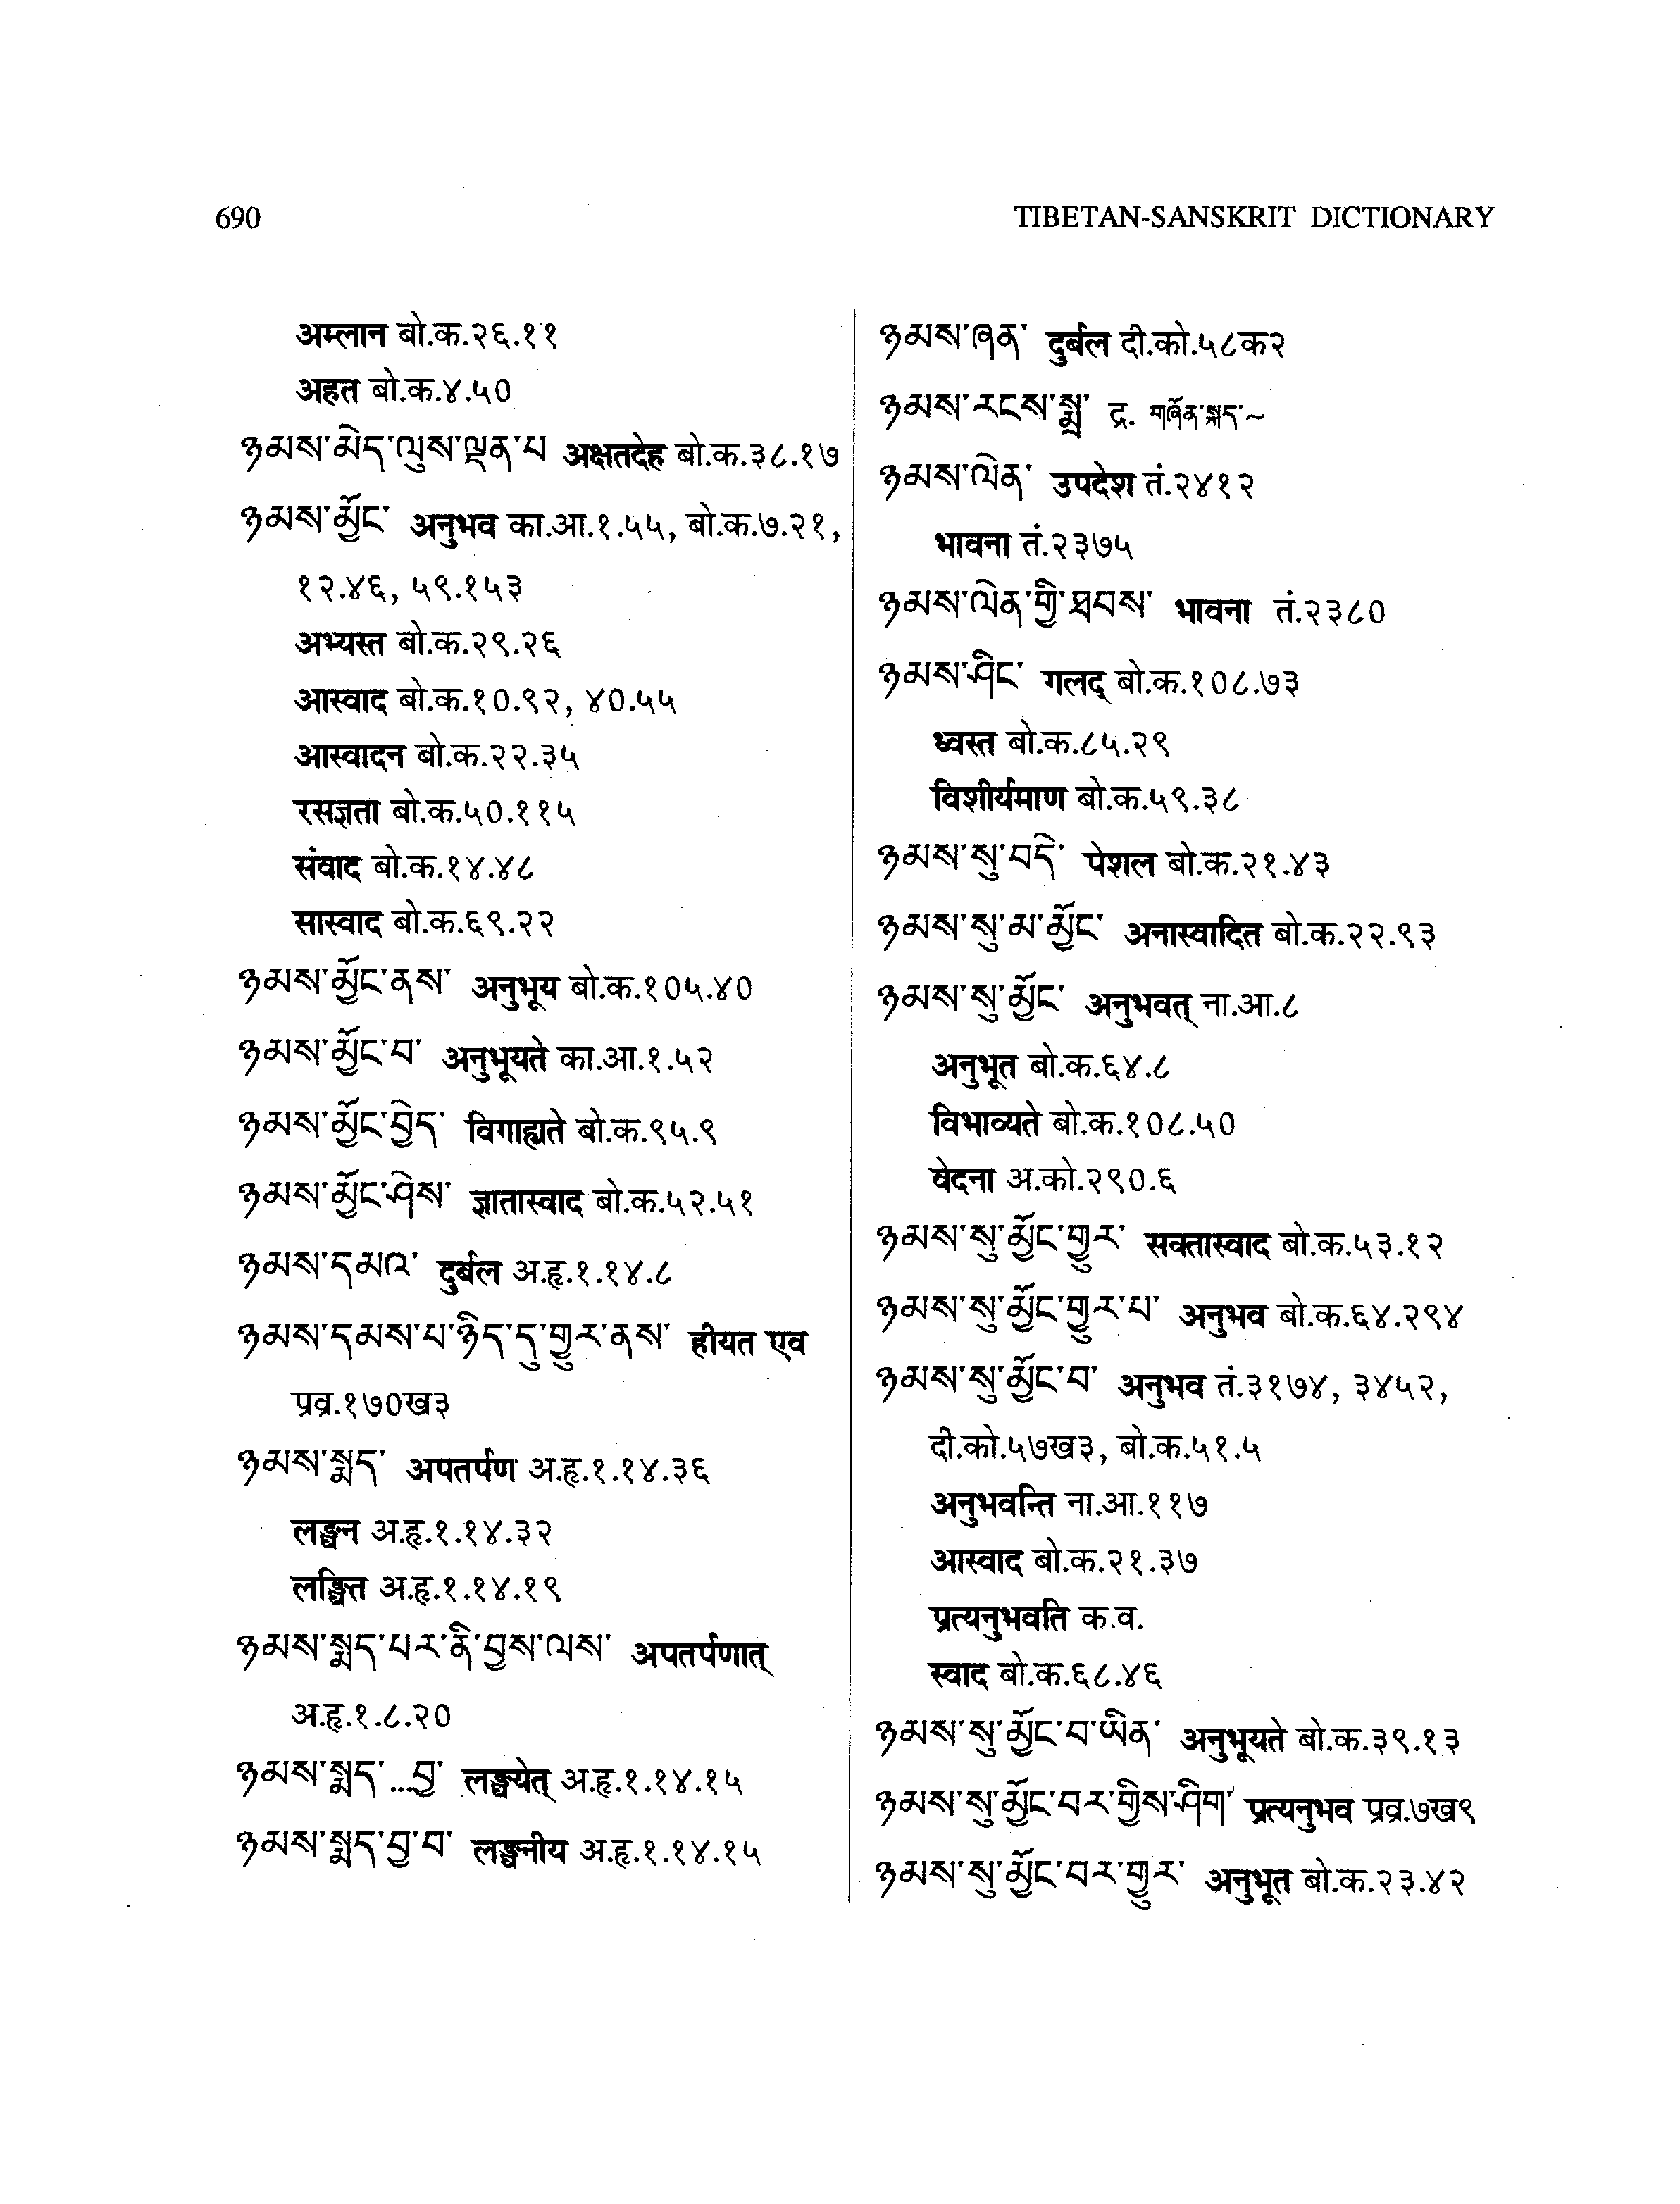 690
TIBETAN-SANSKRIT DICTIONARY
अम्लान बो.क.२६.११
अहत बो.क.४.५०
ཉམས་མེད་ལུས་ལྡན་པ अक्षतदेह बो.क.३८.१७
ཉམས་མྱོང་ अनुभव का.आ.१.५५, बो.क.७.२१,
१२.४६, ५९.१५३
अभ्यस्त बो.क.२९.२६
आस्वाद बो.क.१०.९२, ४०.५५
आस्वादन बो.क.२२.३५
रसज्ञता बो.क.५०.११५
संवाद बो.क.१४.४८
सास्वाद बो.क.६९.२२
ཉམས་མྱོང་ནས་ अनुभूय बो.क.१०५.४०
ཉམས་མྱོང་བ་ अनुभूयते का.आ.१.५२
ཉམས་མྱོང་བྱེད་ विगाह्यते बो.क.९५.९
ཉམས་མྱོང་ཤེས་ ज्ञातास्वाद बो.क.५२.५१
ཉམས་དམའ་ दुर्बल अ.हृ.१.१४.८
ཉམས་དམས་པ་ཉིད་དུ་གྱུར་ནས་ हीयत एव
प्रव्र.१७०ख३
ཉམས་སྨད་ अपतर्पण अ.हृ.१.१४.३६
लङ्घन अ.हृ.१.१४.३२
लङ्घित अ.हृ.१.१४.१९
ཉམས་སྨད་པར་ནི་བྱས་ལས་ अपतर्पणात्
अ.हृ.१.८.२०
ཉམས་སྨད་...བྱ་ लङ्घयेत् अ.हृ.१.१४.१५
ཉམས་སྨད་བྱ་བ་ लङ्घनीय अ.हृ.१.१४.१५
ཉམས་ཞན་ दुर्बल दी.को.५८क२
ཉམས་རངས་སྨྲ་ द्र. གཞོན་སྐད་~
ཉམས་ལེན་ उपदेश तं.२४१२
भावना तं.२३७५
ཉམས་ལེན་གྱི་ཐབས་ भावना तं.२३८०
ཉམས་ཤིང་ गलद् बो.क.१०८.७३
ध्वस्त बो.क.८५.२९
विशीर्यमाण बो.क.५९.३८
ཉམས་སུ་བདེ་ पेशल बो.क.२१.४३
ཉམས་སུ་མ་མྱོང་ अनास्वादित बो.क.२२.९३
ཉམས་སུ་མྱོང་ अनुभवत् ना.आ.८
अनुभूत बो.क.६४.८
विभाव्यते बो.क.१०८.५०
वेदना अ.को.२९०.६
ཉམས་སུ་མྱོང་གྱུར་ सक्तास्वाद बो.क.५३.१२
ཉམས་སུ་མྱོང་གྱུར་པ་ अनुभव बो.क.६४.२९४
ཉམས་སུ་མྱོང་བ་ अनुभव तं.३१७४, ३४५२,
दी.को.५७ख३, बो.क.५१.५
अनुभवन्ति ना.आ.११७
आस्वाद बो.क.२१.३७
प्रत्यनुभवति क.व.
स्वाद बो.क.६८.४६
ཉམས་སུ་མྱོང་བ་ཡིན་ अनुभूयते बो.क.३९.१३
ཉམས་སུ་མྱོང་བར་གྱིས་ཤིག་ प्रत्यनुभव प्रव्र.७ख९
ཉམས་སུ་མྱོང་བར་གྱུར་ अनुभूत बो.क.२३.४२